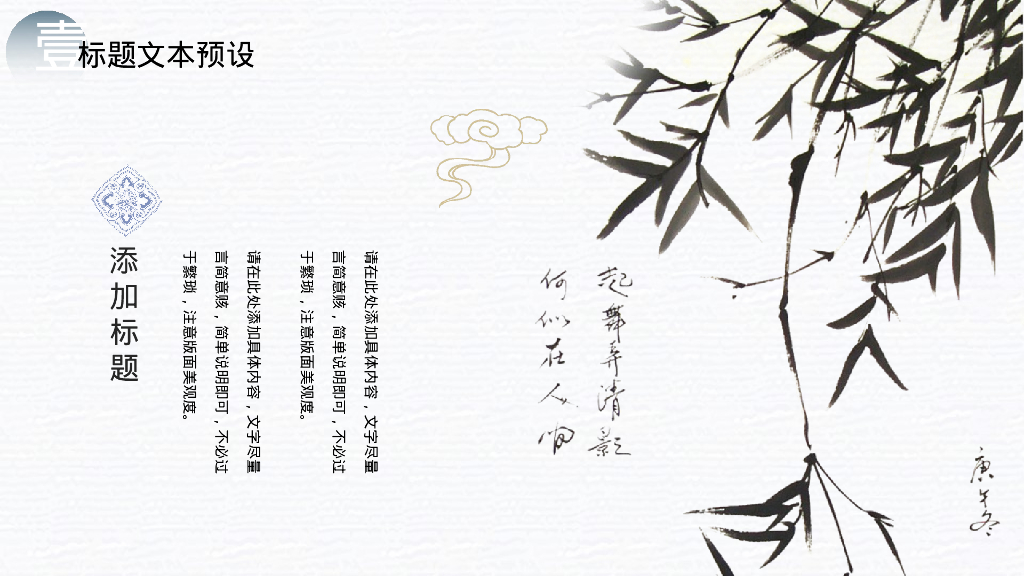 壹
标题文本预设
添加标题
请在此处添加具体内容，文字尽量
言简意赅，简单说明即可，不必过
于繁琐，注意版面美观度。
请在此处添加具体内容，文字尽量
言简意赅，简单说明即可，不必过
于繁琐，注意版面美观度。
起舞弄清影
何似在人间
庚午冬